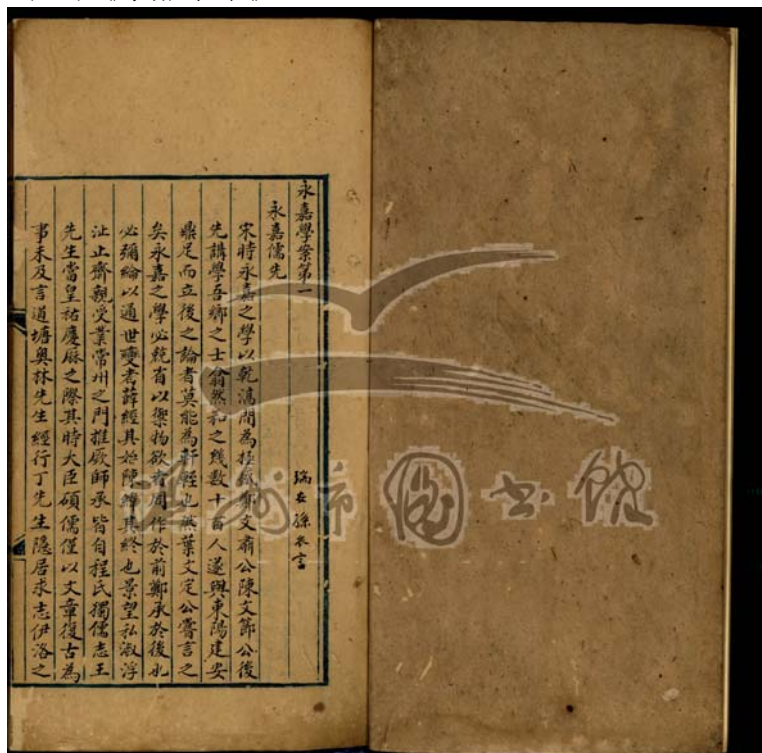 永嘉學案第一
瑞安孫衣言
永嘉儒先
宋時永嘉之學以乾淳間為極盛鄭文肅公陳文節公後
先講學吾鄉之士翕然和之綫數十百人遂與東陽建安
鼎足而立後之論者莫能為軒輊也然葉文定公嘗言之
矣永嘉之學必兢省以禦物欲者周作於前鄭承於後也
必彌綸以通世變者薛經其始陳緯其終也景望私淑浮
沚止齋親受業常州之門推厥師承皆自程氏獨儒志王
先生當皇祐慶厤之際其時大臣碩儒僅以文章復古為
事未及言道塘奧林先生經行丁先生隱居求志伊洛之
溫州市圖書館